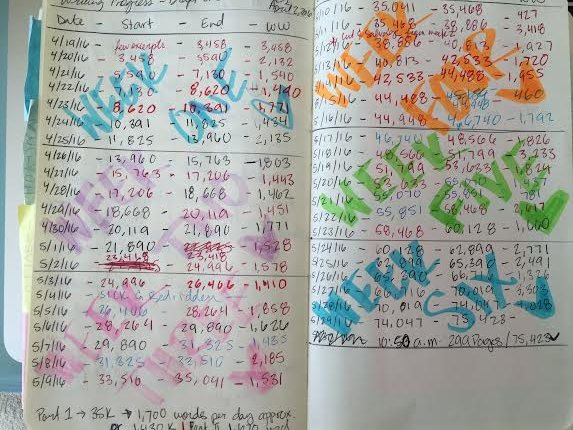 Writing Progress
Date - Start - End - WW
4/19/16 - few excerpts - 3,458 - 3,458
4/20/16 - 3,458 - 5590 - 2,132
4/21/16 - 5,590 - 7,130 - 1,540
4/22/16 - 7,130 - 8,620 - 1,490
4/23/16 - 8,620 - 10,391 - 1,771
4/24/16 - 10,391 - 11,825 - 1,434
4/25/16 - 11,825 - 13,960 - 2,135
WEEK ONE
4/26/16 - 13,960 - 15,763 - 1,803
4/27/16 - 15,763 - 17,206 - 1,443
4/28/16 - 17,206 - 18,668 - 1,462
4/29/16 - 18,668 - 20,119 - 1,451
4/30/16 - 20,119 - 21,890 - 1,771
5/1/16 - 21,890 - 23,418 - 1,528
5/2/16 - 23,418 - 24,996 - 1,578
WEEK TWO
5/3/16 - 24,996 - 26,406 - 1,410
5/4/16 - Sick & Bedridden
5/5/16 - 26,406 - 28,264 - 1,858
5/6/16 - 28,264 - 29,890 - 1,626
5/7/16 - 29,890 - 31,325 - 1,435
5/8/16 - 31,325 - 33,510 - 2,185
5/9/16 - 33,510 - 35,041 - 1,531
WEEK THREE
Part 1 → 35K → 1,700 words per day approx.
5/10/16 - 35,041 - 35,468 - 427
5/11/16 - 35,468 - 38,886 - 3,418
38,886 - 40,813 - 1,927
5/13/16 - 40,813 - 42,533 - 1,720
42,533 - 44,488 - 1,955
5/15/16 - 44,488 - 44,948 - 460
5/16/16 - 44,948 - 46,740 - 1,792
WEEK FOUR
5/17/16 - 46,740 - 48,566 - 1,826
5/18/16 - 48,566 - 51,799 - 3,233
5/19/16 - 51,799 - 53,633 -
5/20/16 - 53,633 -
55,070 - 55,851 - 781
5/22/16 - 55,851 - 58,468 - 2,617
5/23/16 - 58,468 - 60,128 - 1,660
WEEK FIVE
5/24/16 - 60,128 - 62,899 - 2,771
5/25/16 - 65,390 - 2,491
5/26/16 - 65,390 - 1,326
70,019
5/28/16 - 70,019 - 74,047 - 4,028
74,047 - 75,423 -
WEEK SIX
10:50 a.m - 299 Pages / 75,423